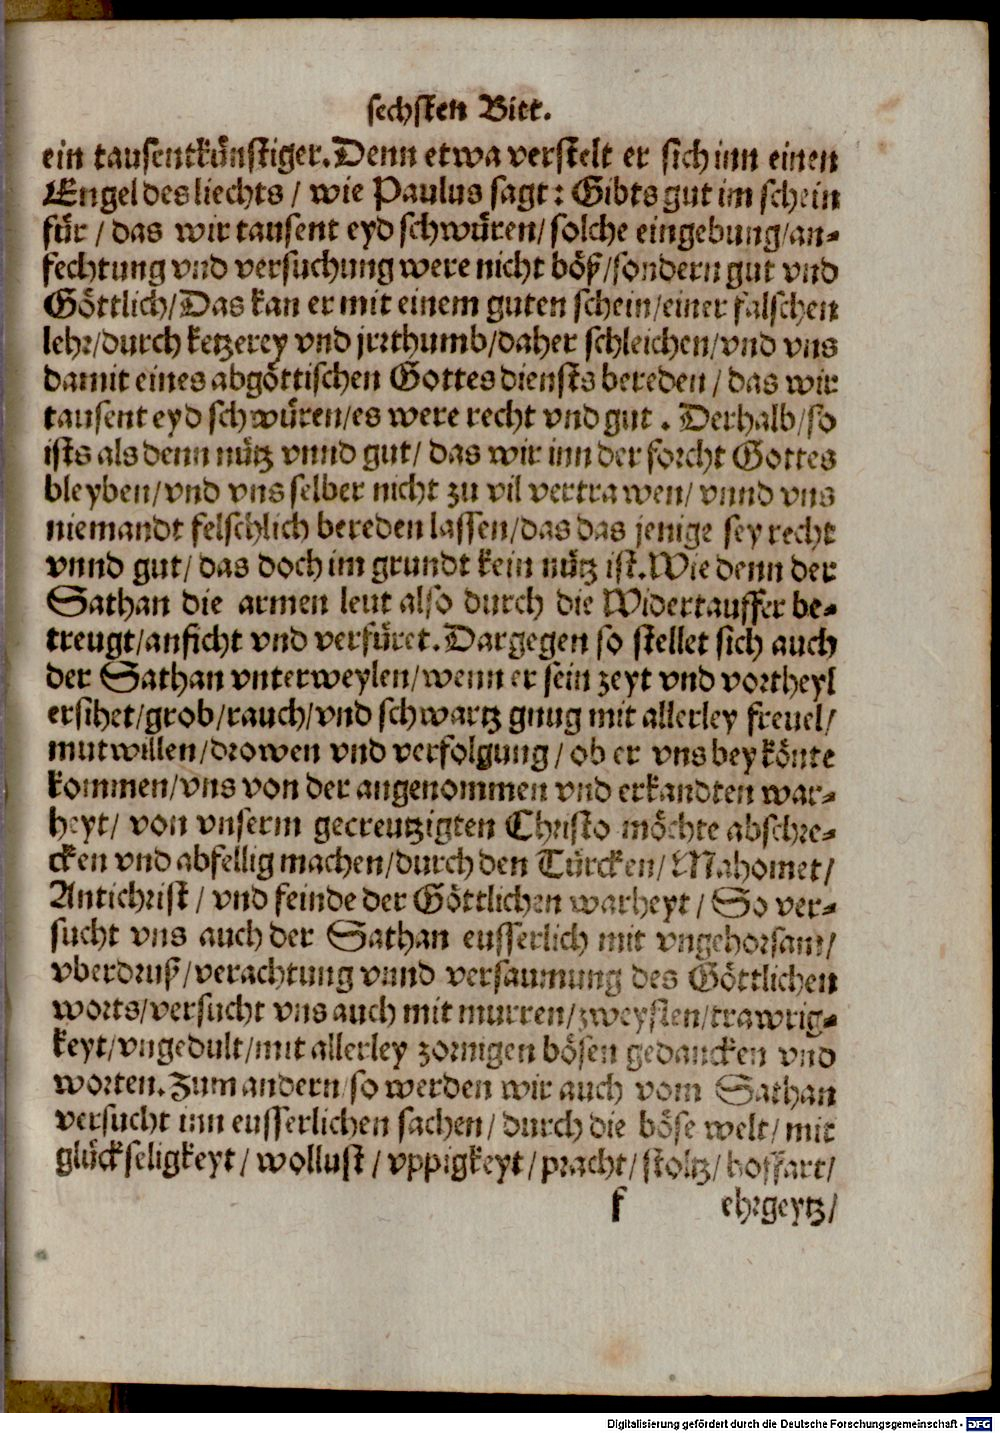 sechsten Bitt.
ein tausentkünstiger. Denn etwa verstelt er sich inn einen
Engel des liechts / wie Paulus sagt: Gibts gut im schein
für / das wir tausent eyd schwüren/ solche eingebung/an-
fechtung vnd versuchung were nicht böß/sondern gut vnd
Göttlich/Das kan er mit einem guten schein/einer falschen
lehr/durch ketzerey vnd jrrthumb/daher schleichen/vnd vns
damit eines abgöttischen Gottes diensts bereden / das wir
tausent eyd schwüren/es were recht vnd gut. Derhalb/so
ists als denn nütz vnnd gut/ das wir inn der forcht Gottes
bleyben/vnd vns selber nicht zu vil vertrawen/ vnnd vns
niemandt felschlich bereden lassen/das das jenige sey recht
vnnd gut/ das doch im grundt kein nütz ist. Wie denn der
Sathan die armen leut also durch die Widertauffer be-
treugt/anficht vnd verfüret. Dargegen so stellet sich auch
der Sathan vnterweylen/wenn er sein zeyt vnd vortheyl
ersihet/grob/rauch/vnd schwartz gnug mit allerley freuel/
mutwillen/drowen vnd verfolgung / ob er vns bey könte
kommen/vns von der angenommen vnd erkandten war-
heyt/ von vnserm gecreutzigten Christo möchte abschre-
cken vnd abfellig machen/durch den Türcken/ Mahomet/
Antichrist / vnd feinde der Göttlichen warheyt / So ver-
sucht vns auch der Sathan eusserlich mit vngehorsam/
vberdruß/verachtung vnnd versaumung des Göttlichen
worts/versucht vns auch mit murren/zweyflen/trawrig-
keyt/vngedult/mit allerley zornigen bösen gedancken vnd
worten. Zum andern/so werden wir auch vom Sathan
versucht inn eusserlichen sachen/ durch die böse welt/ mit
glückseligkeyt / wollust / vppigkeyt / pracht/ stoltz/ hoffart/
f ehrgeytz/
Digitalisierung gefördert durch die Deutsche Forschungsgemeinschaft - DFG